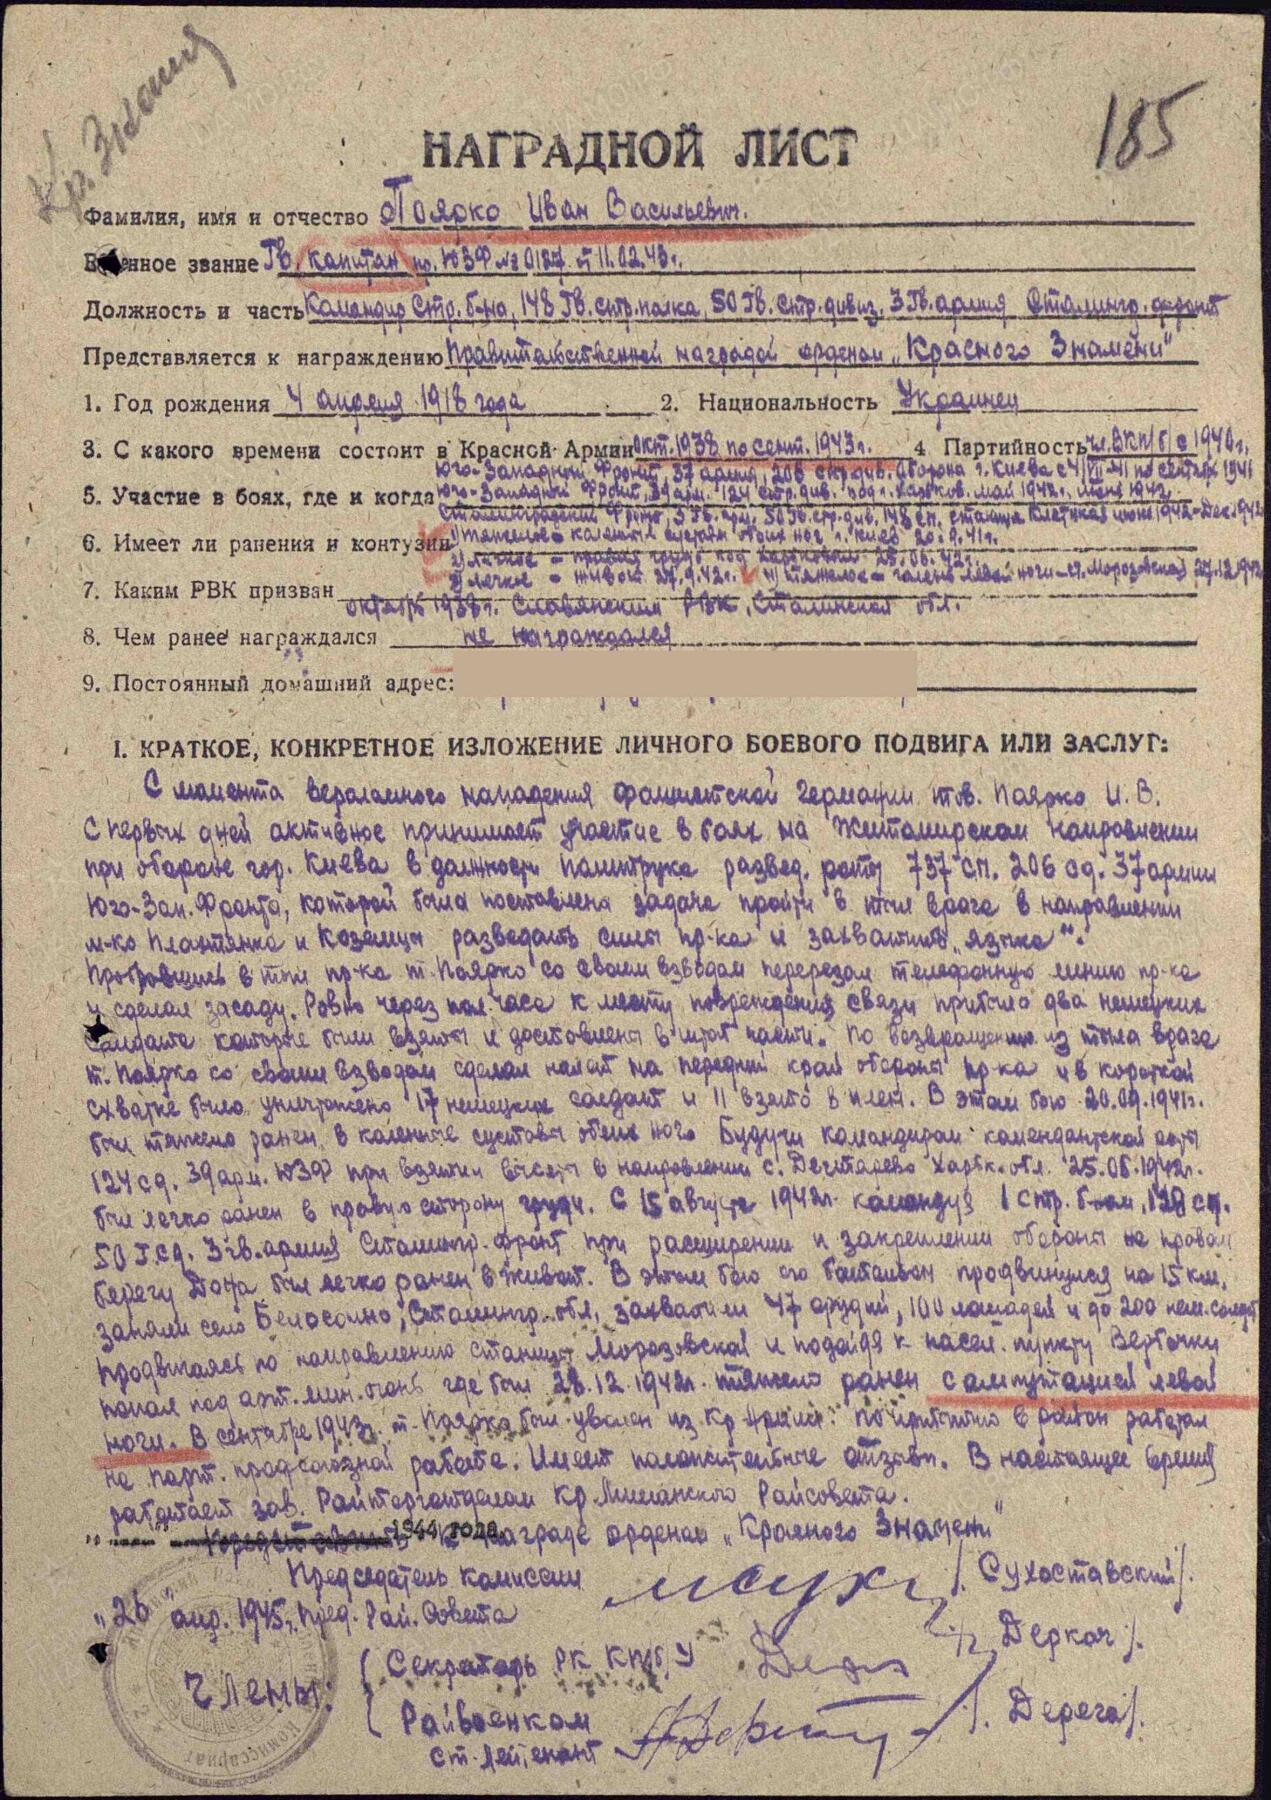 Кр. Знамя
185
НАГРАДНОЙ ЛИСТ
Фамилия, имя и отчество Поярко Иван Васильевич.
Военное звание Гв. капитан пр. ЮЗФ № 0127 от 11.02.43г.
Должность и часть Командир Стр. б-на, 148 Гв. стр. полка, 50 Гв. стр. дивиз. 3 Гв. армия Сталингр. фронт
Представляется к награждению Правительственной наградой орденом „Красного Знамени"
1. Год рождения 4 апреля 1918 года 2. Национальность Украинец
3. С какого времени состоит в Красной Армии окт. 1938 по сент. 1943г. 4 Партийность чл. ВКП/б/ с 1940г.
Юго-Западный Фронт, 37 армия, 206 стр. див. Оборона г. Киева с 4/VII-41 по сентябрь 1941
5. Участие в боях, где и когда Юго-Западный Фронт, 39 арм. 124 стр. див. под г. Харьков. май 1942г. июнь 1942
Сталинградский Фронт, 3 Гв. арм. 50 Гв. стр. див. 148 сп. станица Клетская июнь 1942-Дек. 1942
6. Имеет ли ранения и контузии 1) тяжелое - коленные суставы обоих ног г. Киев 20.9.41г.
2) легкое - правая грудь под Харьковом 25.06.42г.
3) легкое - живот 27.9.42г. 4) тяжелое - голень левой ноги - ст. Морозовская 27.12.1942
7. Каким РВК призван октябрь 1938г. Славянским РВК, Сталинской обл.
8. Чем ранее награждался не награждался
9. Постоянный домашний адрес:
I. КРАТКОЕ, КОНКРЕТНОЕ ИЗЛОЖЕНИЕ ЛИЧНОГО БОЕВОГО ПОДВИГА ИЛИ ЗАСЛУГ:
С момента вероломного нападения фашистской Германии тов. Поярко И. В.
С первых дней активное принимает участие в боях на Житомирском направлении
при обороне гор. Киева в должности политрука развед. роты 737 сп. 206 сд. 37 армии
Юго-Зап. Фронта, которой была поставлена задача пройти в тыл врага в направлении
м-ко Плахтянка и Козелцы разведать силы пр-ка и захватить „языка".
Пробравшись в тыл пр-ка т. Поярко со своим взводом перерезал телефонную линию пр-ка
и сделал засаду. Ровно через пол часа к месту повреждения связи прибыло два немецких
солдата которые были взяты и доставлены в штаб части. По возвращению из тыла врага
т. Поярко со своим взводом сделал налет на передний край обороны пр-ка и в короткой
схватке было уничтожено 17 немецких солдат и 11 взято в плен. В этом бою 20.09.1941г.
был тяжело ранен в коленные суставы обеих ног. Будучи командиром комендантской роты
124 сд. 39 арм. ЮЗФ при взятии высоты в направлении с. Дегтярево Харьк. обл. 25.06.1942г.
был легко ранен в правую сторону груди. С 15 августа 1942г. командуя 1 стр. б-ом, 148 сп.
50 Гсд. 3 гв. армия Сталингр. Фронт при расширении и закреплении обороны на правом
берегу Дона был легко ранен в живот. В этом бою его батальон продвинулся на 15 км,
заняли село Беласолно, Сталингр. обл, захватили 47 орудий, 100 лошадей и до 200 нем. солдат
Продвигаясь по направлению станицы Морозовской и подойдя к насел. пункту Вербочки
попал под арт. мин. огонь где был 28.12.1942г. тяжело ранен с ампутацией левой
ноги. В сентябре 1943г. т. Поярко был уволен из Кр. Армии: по прибытию в район работал
на парт. профсоюзной работе. Имеет положительные отзывы. В настоящее время
работает зав. Райторготделом Кр. Лиманского Райсовета.
1944 года. к награде орденом „Красного Знамени"
Председатель комиссии /Сухоставский/.
„26" апр. 1945г. Пред. Рай. Совета
Члены: Секретарь РК КП/б/У /Деркач/.
Райвоенком
Ст. Лейтенант /Дерега/.
Комиссариат